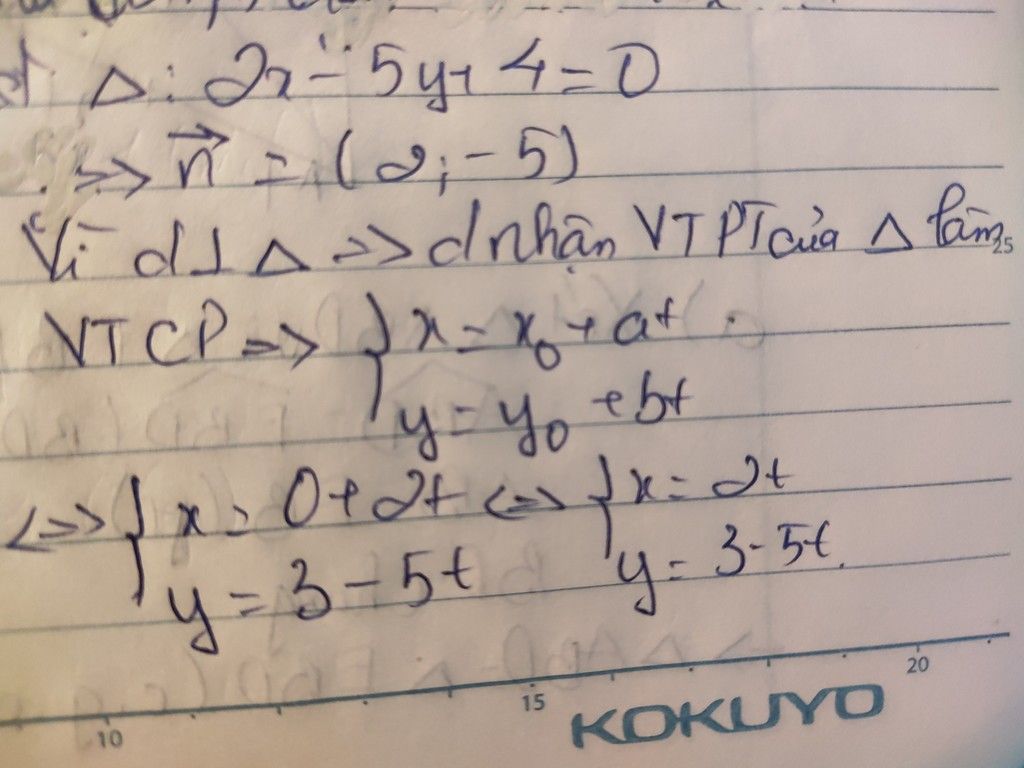 Δ: 2x - 5y + 4 = 0
=> n⃗ = (2; -5)
Vì d ⊥ Δ => d nhận VTPT của Δ làm
VTCP => { x = x₀ + at
y = y₀ + bt
<=> { x = 0 + 2t <=> { x = 2t
y = 3 - 5t y = 3 - 5t.
10 15 20
KOKUYO